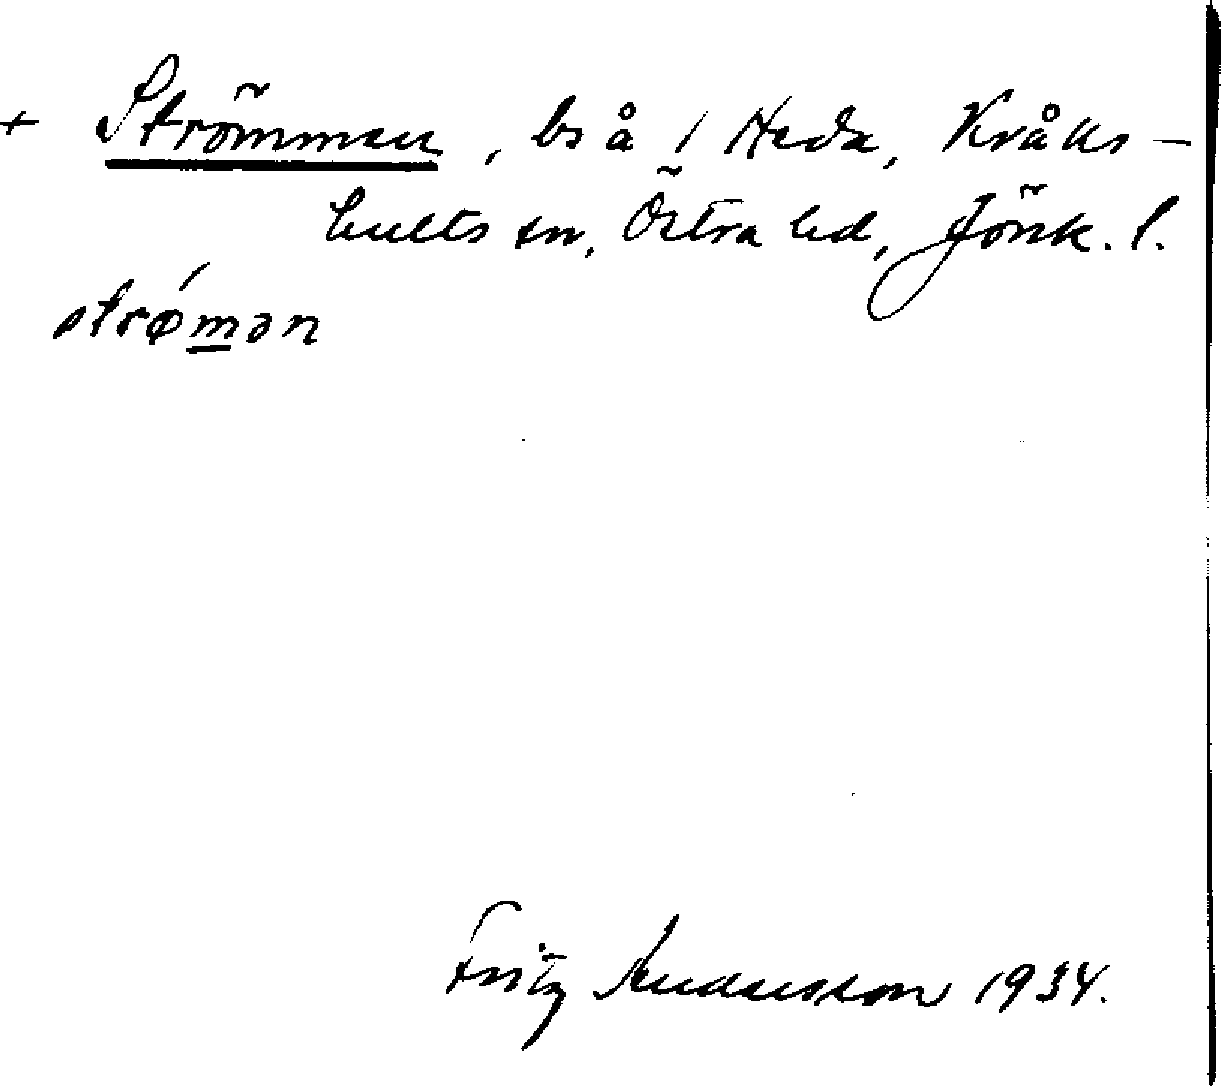 + Strömmen, bs å / Heda, Kråks-
hults sn, Östra hd, Jönk. l.
strǿmən
Fritz Andersson 1934.